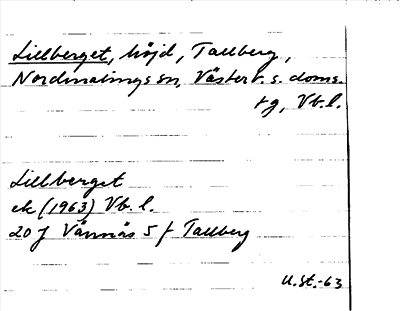 Lillberget, höjd, Tallberg,
Nordmalings sn, Västerb. s. doms.
tg, Vb. l.
Lillberget
ek (1963) Vb. l.
20 J Vännäs 5 f Tallberg
U.St.-63